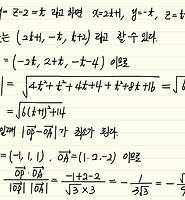 z-2=t 라고 하면 x=2t+1, y=-t, z=t
는 (2t+1, -t, t+2) 라고 할 수 있다.
=(-2t, 2+t, -t-4) 이므로
|=√4t²+t²+4t+4+t²+8t+16 =√6
=√6(t+1)²+14
일때 |OP-Oh| 가 최소가 된다.
=(-1, 1, 1). Oh=(1.2.-2) 이므로
OP·Oh / |OP||Oh| = -1+2-2 / √3×3 = -1/3√3 =-√